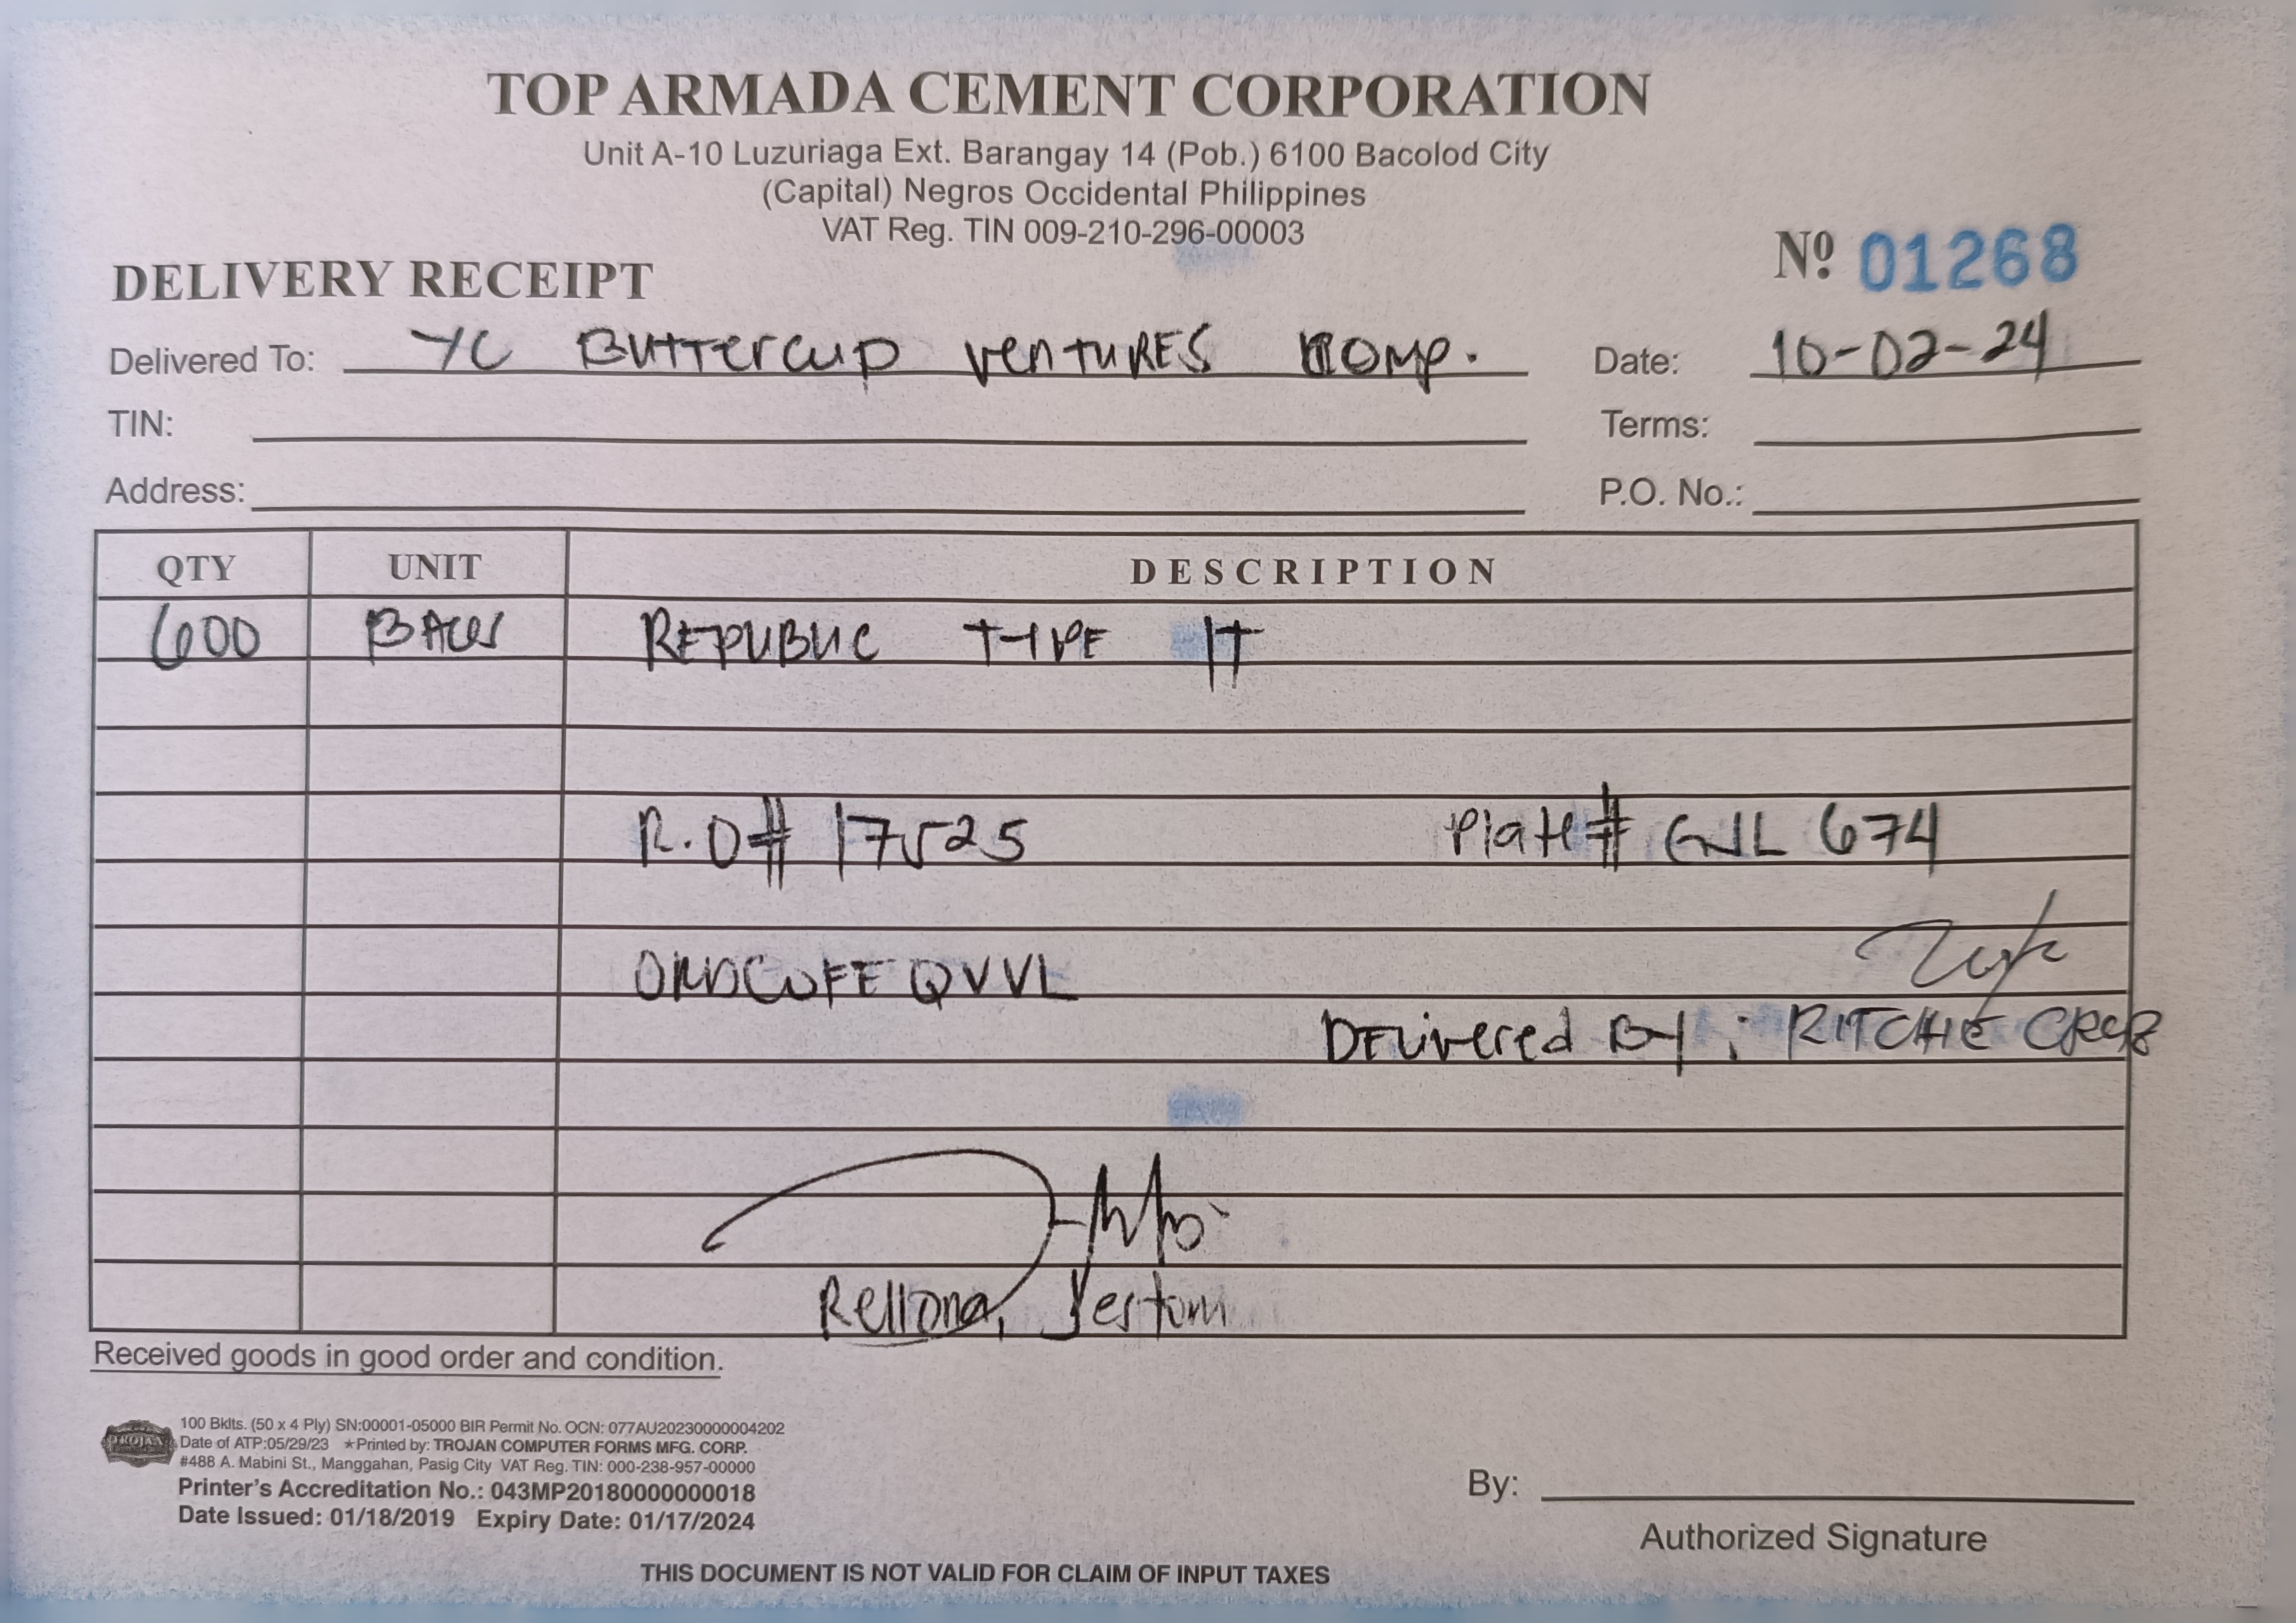 TOP ARMADA CEMENT CORPORATION
Unit A-10 Luzuriaga Ext. Barangay 14 (Pob.) 6100 Bacolod City
(Capital) Negros Occidental Philippines
VAT Reg. TIN 009-210-296-00003
DELIVERY RECEIPT
Nº 01268
Delivered To: YC Buttercup Ventures Comp. Date: 10-02-24
TIN: Terms:
Address: P.O. No.:
QTY UNIT DESCRIPTION
600 BAGS REPUBLIC TYPE IT
R.O# 17525 Plate# GJL 674
QVVL
Delivered By: RITCHIE
Rellona,
Received goods in good order and condition.
TROJAN
100 Bklts. (50 x 4 Ply) SN:00001-05000 BIR Permit No. OCN: 077AU20230000004202
Date of ATP:05/29/23 ★Printed by: TROJAN COMPUTER FORMS MFG. CORP.
#488 A. Mabini St., Manggahan, Pasig City VAT Reg. TIN: 000-238-957-00000
Printer's Accreditation No.: 043MP20180000000018
Date Issued: 01/18/2019 Expiry Date: 01/17/2024
By:
Authorized Signature
THIS DOCUMENT IS NOT VALID FOR CLAIM OF INPUT TAXES